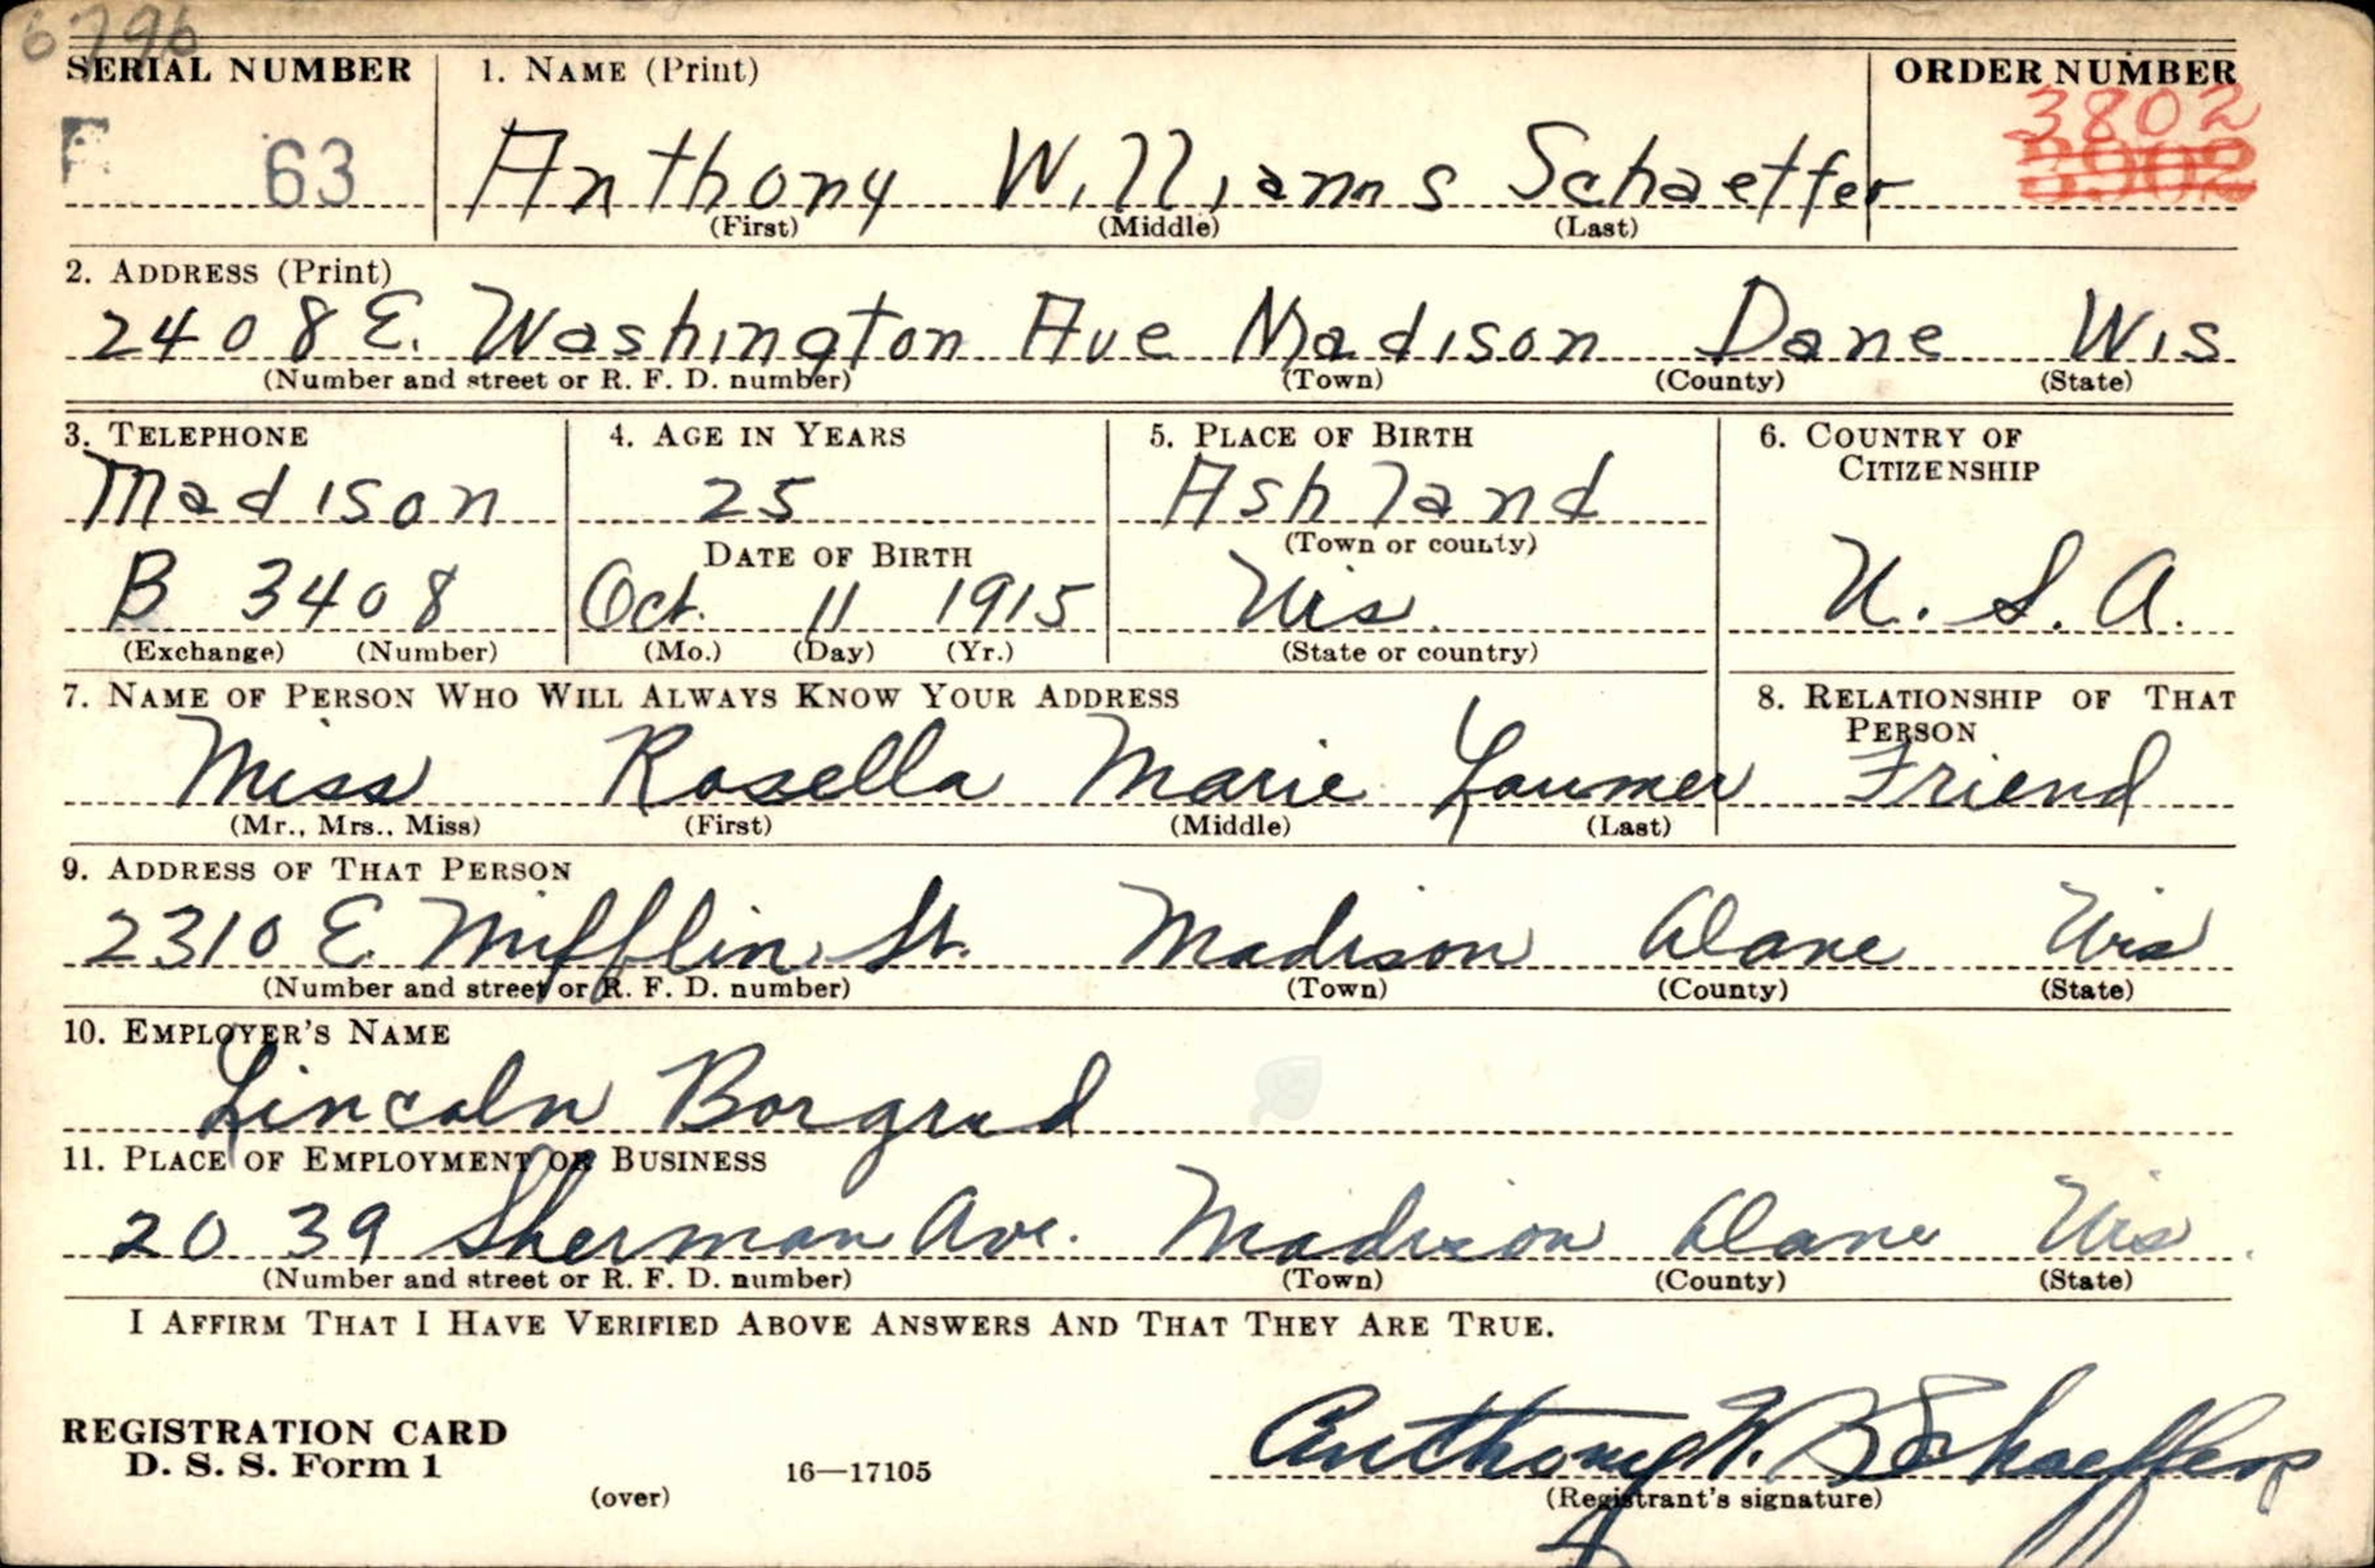 6796
SERIAL NUMBER 1. NAME (Print) ORDER NUMBER
3802
63 Anthony Williams Schaeffer
(First) (Middle) (Last)
2. ADDRESS (Print)
2408 E. Washington Ave Madison Dane Wis
(Number and street or R. F. D. number) (Town) (County) (State)
3. TELEPHONE 4. AGE IN YEARS 5. PLACE OF BIRTH 6. COUNTRY OF CITIZENSHIP
Madison 25 Ashland
DATE OF BIRTH (Town or county)
B 3408 Oct. 11 1915 Wis. U. S. A.
(Exchange) (Number) (Mo.) (Day) (Yr.) (State or country)
7. NAME OF PERSON WHO WILL ALWAYS KNOW YOUR ADDRESS 8. RELATIONSHIP OF THAT PERSON
Miss Rosella Marie Laumer Friend
(Mr., Mrs., Miss) (First) (Middle) (Last)
9. ADDRESS OF THAT PERSON
2310 E. Mifflin St. Madison Dane Wis
(Number and street or R. F. D. number) (Town) (County) (State)
10. EMPLOYER'S NAME
Lincoln Borgrud
11. PLACE OF EMPLOYMENT OR BUSINESS
2039 Sherman Ave. Madison Dane Wis.
(Number and street or R. F. D. number) (Town) (County) (State)
I AFFIRM THAT I HAVE VERIFIED ABOVE ANSWERS AND THAT THEY ARE TRUE.
REGISTRATION CARD
D. S. S. Form 1 16—17105 Anthony W. Schaeffer
(over) (Registrant's signature)